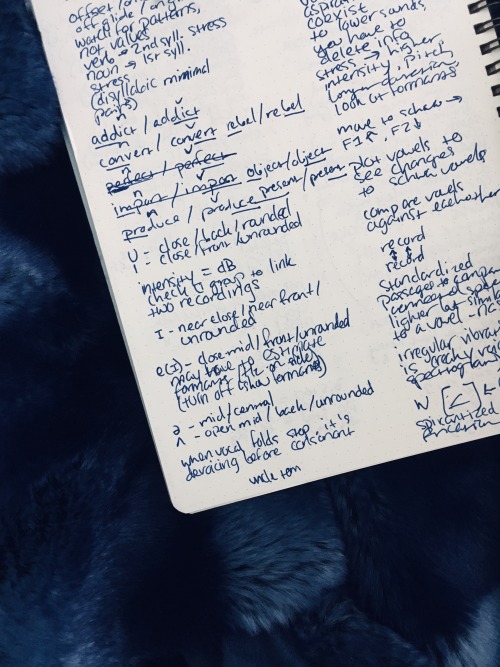 offset/on
offglide/ongl
watch for patterns,
not values
verb → 2nd syll. stress
noun → 1st syll.
stress
(disyllabic minimal
pairs)
addict / addict
convert / convert rebel/rebel
perfect / perfect
import / import object/object
produce / produce present/present
U = close/back/rounded
i = close/front/unrounded
intensity = dB
check & group to link
two recordings
I - near close/near front/
unrounded
e(I) - close mid/front/unrounded
may have to estimate
formants
(turn off other formants)
ə - mid/central
ʌ - open mid/back/unrounded
when vocal folds stop, it's
devoicing before consonant
uncle tom
to lower sounds
you have to
delete info
stress → higher
intensity, pitch
longer duration,
look at formants
move to schwa →
F1↑, F2↓
plot vowels to
see changes
to schwa vowels
compare vowels
against eachother
record
record
standardized
passages to
to a vowel
irregular
is creaky
W [
spirantized